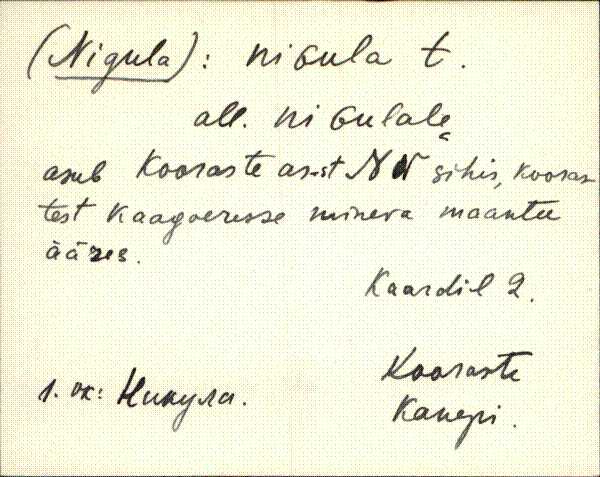 (Nigula): niGula t.
all. niGulale
asub Kooraste as-st NW sihis, Kooras-
test Kaagveresse mineva maantee
ääres.
Kaardil 2.
1. вк: Никула.
Kooraste
Kanepi.